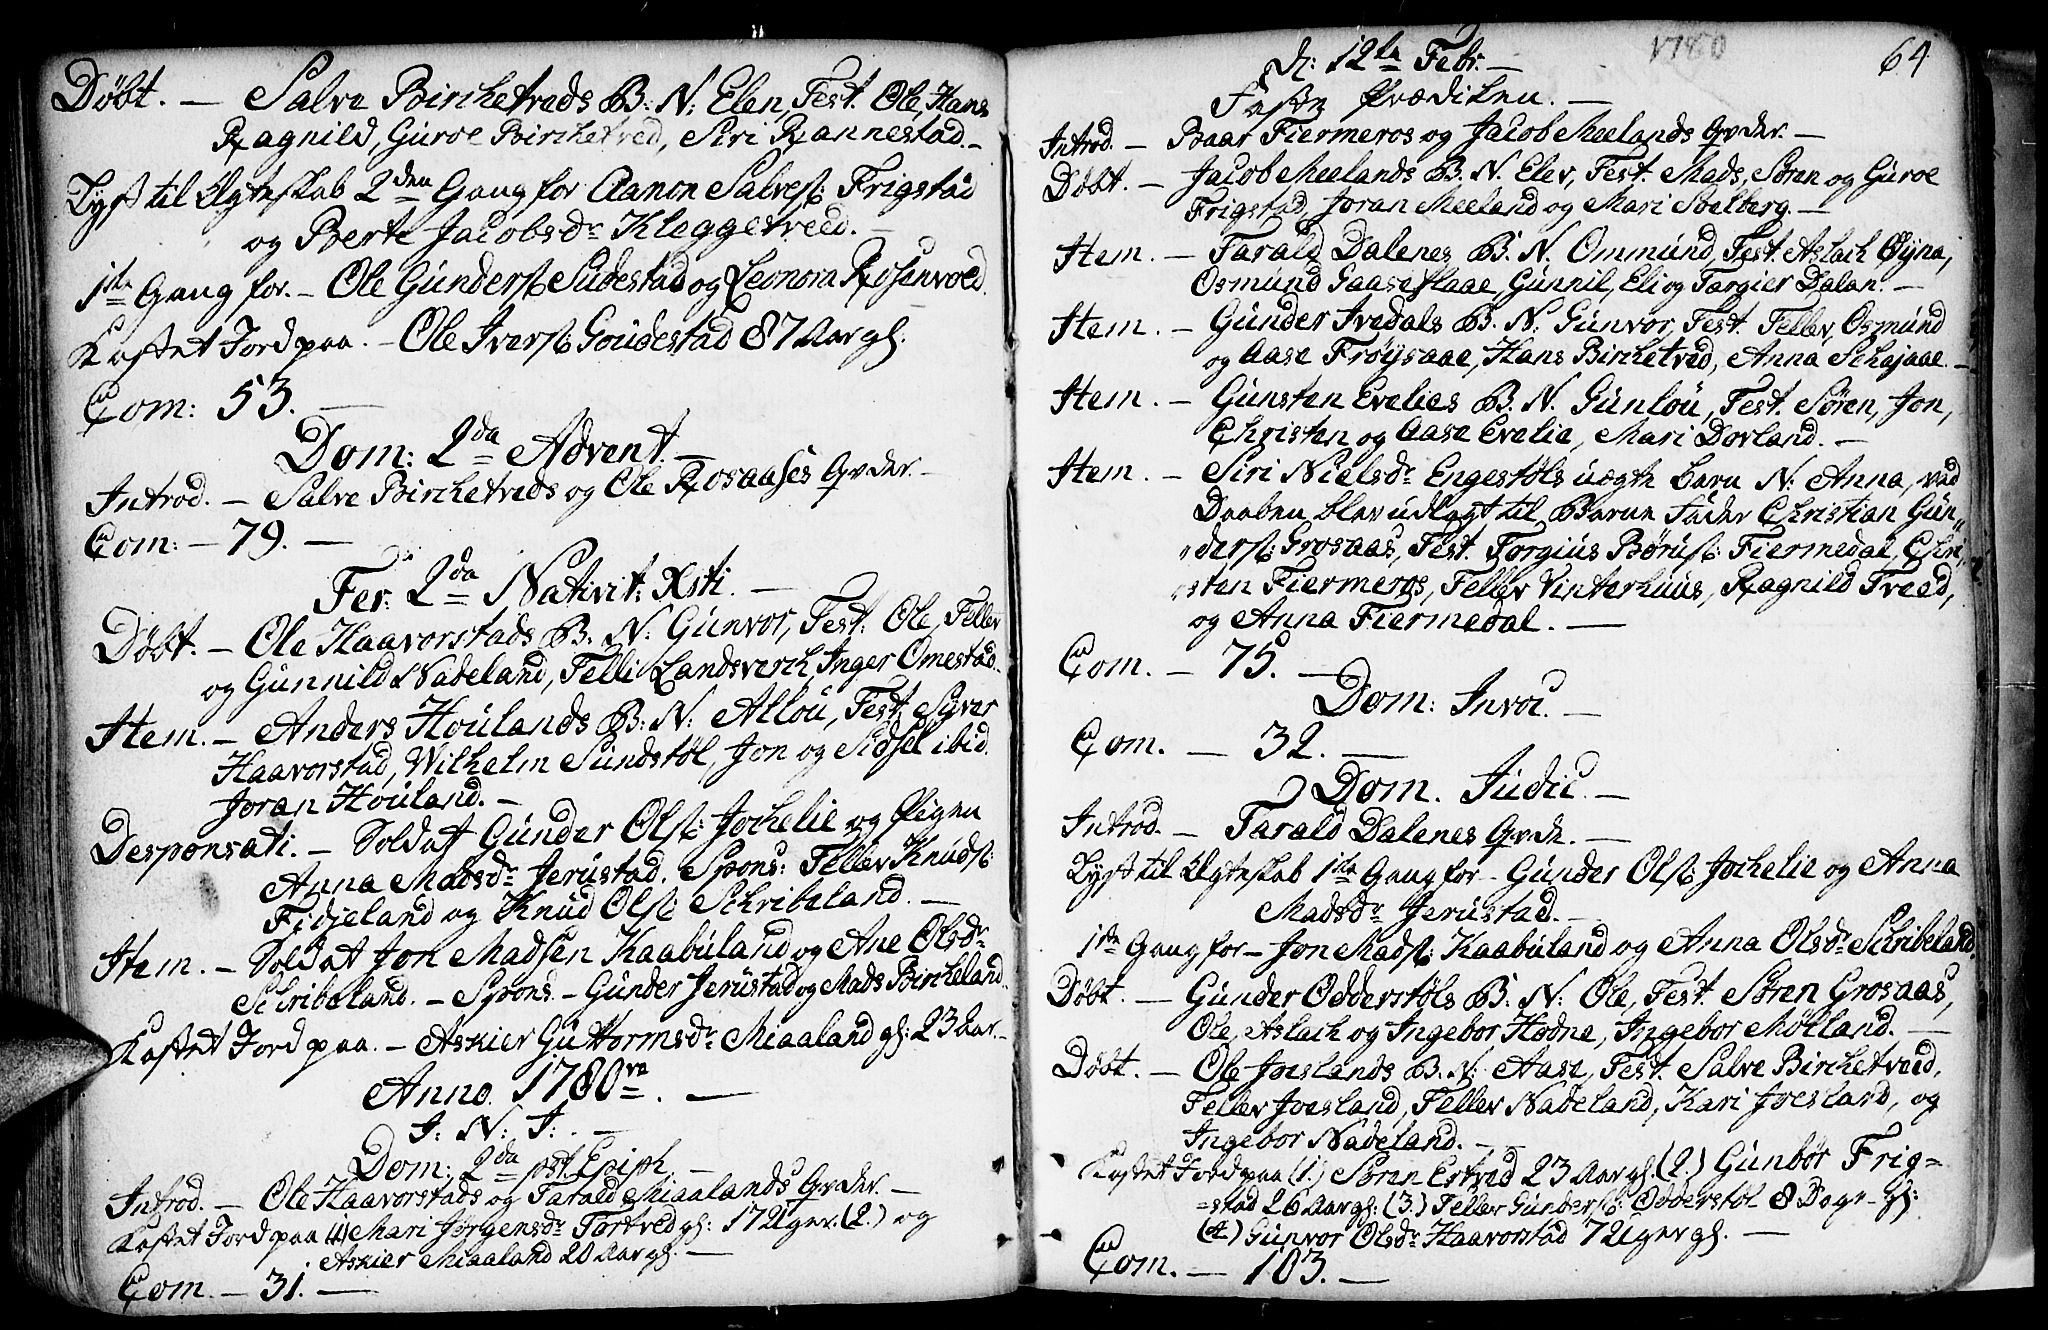 Døbt. — Salve Birchetveds B: N: Elen, Test. Ole, Hans
Ragnild, Guroe Birchetved, Siri Rannestad. –
Lyst til Ægteskab 2den Gang for Aanon Salves: Frigstad
og Berte Jacobsdr Kleggetveed. –
1ste Gang for. – Ole Gunders: Sudestad og Leonora Rosenvold.
Kastet Jord paa. – Ole Ivers: Goudestad 87 Aar gl.
Com: 53. —
Dom: 2da Advent. –
Introd. – Salve Birchetveds og Ole Rosaases Qvder. –
Com: – 79. —
Fer: 2da Nativit: Xsti. –
Døbt. – Ole Haavorstads B: N: Gunvor, Test: Ole, Tellev
og Gunnild Nadeland, Telli Landsverch, Inger Omestad.
Item. – Anders Houlands B: N: Allou, Test. Syver
Haavorstad, Wilhelm Sundstøl, Jon og Sidsel ibid.
Joran Houland. –
Desponsati. – Soldat Gunder Ols: Jochelie og Pigen
Anna Madsdr Jerustad. Spons: Tellev Knuds:
Fidjeland og Knud Ols: Schribeland. –
Item. – Soldat Jon Madsen Kaabuland og Ane Olsdr
Schribeland. – Spons. – Gunder Jerustad og Mads Bircheland.
Kastet Jord paa. – Askier Guttormsdr Miaaland gl: 23 Aar. –
Anno. 1780ve. —
I: N: J: . –
Dom: 2da pst. Epiph. –
Introd. – Ole Haavorstads og Tarald Miaalands Qvder. –
Kastet Jord paa (1.) Mari Jørgensdr Tortved gl: 17 Uger. (2.) og
Askier Miaaland 20 Aar gl. –
Com. – 31. —
1780 64
d: 12te Febr. –
Faste Prædiken. –
Introd. – Baar Fiermeros og Jacob Meelands Qvder. –
Døbt. – Jacob Meelands B: N. Elev, Test. Mads, Søren og Guroe
Frigstad, Joran Meeland og Mari Solberg. –
Item. – Tarald Dalenes B: N. Ommund, Test. Aslach Øyna,
Osmund Gaaseflaae, Gunnil, Eli og Targier Dalan. –
Item. – Gunder Ivedals B: N: Gunvor, Test. Tellev, Osmund
og Aase Frøysaae, Hans Birchetved, Anna Schajaae. –
Item. – Gunsten Evelies B: N. Gunlou, Test. Søren, Jon,
Christen og Aase Evelie, Mari Dorland. –
Item. – Siri Nielsdr Engestøls uægte Barn N: Anna, ved
Daaben blev udlagt til Barne Fader Christian Gun„
„ders: Grosaas, Test. Torgius Børus: Fiermedal, Chri„
„sten Fiermeros, Tellev Vinterhuus, Ragnild Tveed,
og Anna Fiermedal. —
Com. – 75. –
Dom: Invoc. –
Com. — 32. —
Dom. Judic. –
Introd. – Tarald Dalenes Qvde. –
Lyst til Ægteskab 1ste Gang for – Gunder Ols: Jochelie og Anna
Madsdr Jerustad. –
1ste Gang for – Jon Mads: Kaabuland og Anna Olsdr Schribeland.
Døbt. — Gunder Odderstøls B: N: Ole, Test. Søren Grosaas,
Ole, Aslach og Ingebor Hodne, Ingebor Mølland. –
Døbt. – Ole Joeslands B: N: Aase, Test. Salve Birchetveed,
Tellev Joesland, Tellev Nadeland, Kari Joesland, og
Ingebor Nadeland. –
Kastet Jord paa (1.) Søren Estved 23 Aar gl. (2.) Gunbør Frig=
=stad 26 Aar gl: (3.) Tellev Gunders: Odderstøl 8 Dage gl:
(4.) Gunvor Olsdr Haavorstad 7 Uger gl. —
Com. – 103. —